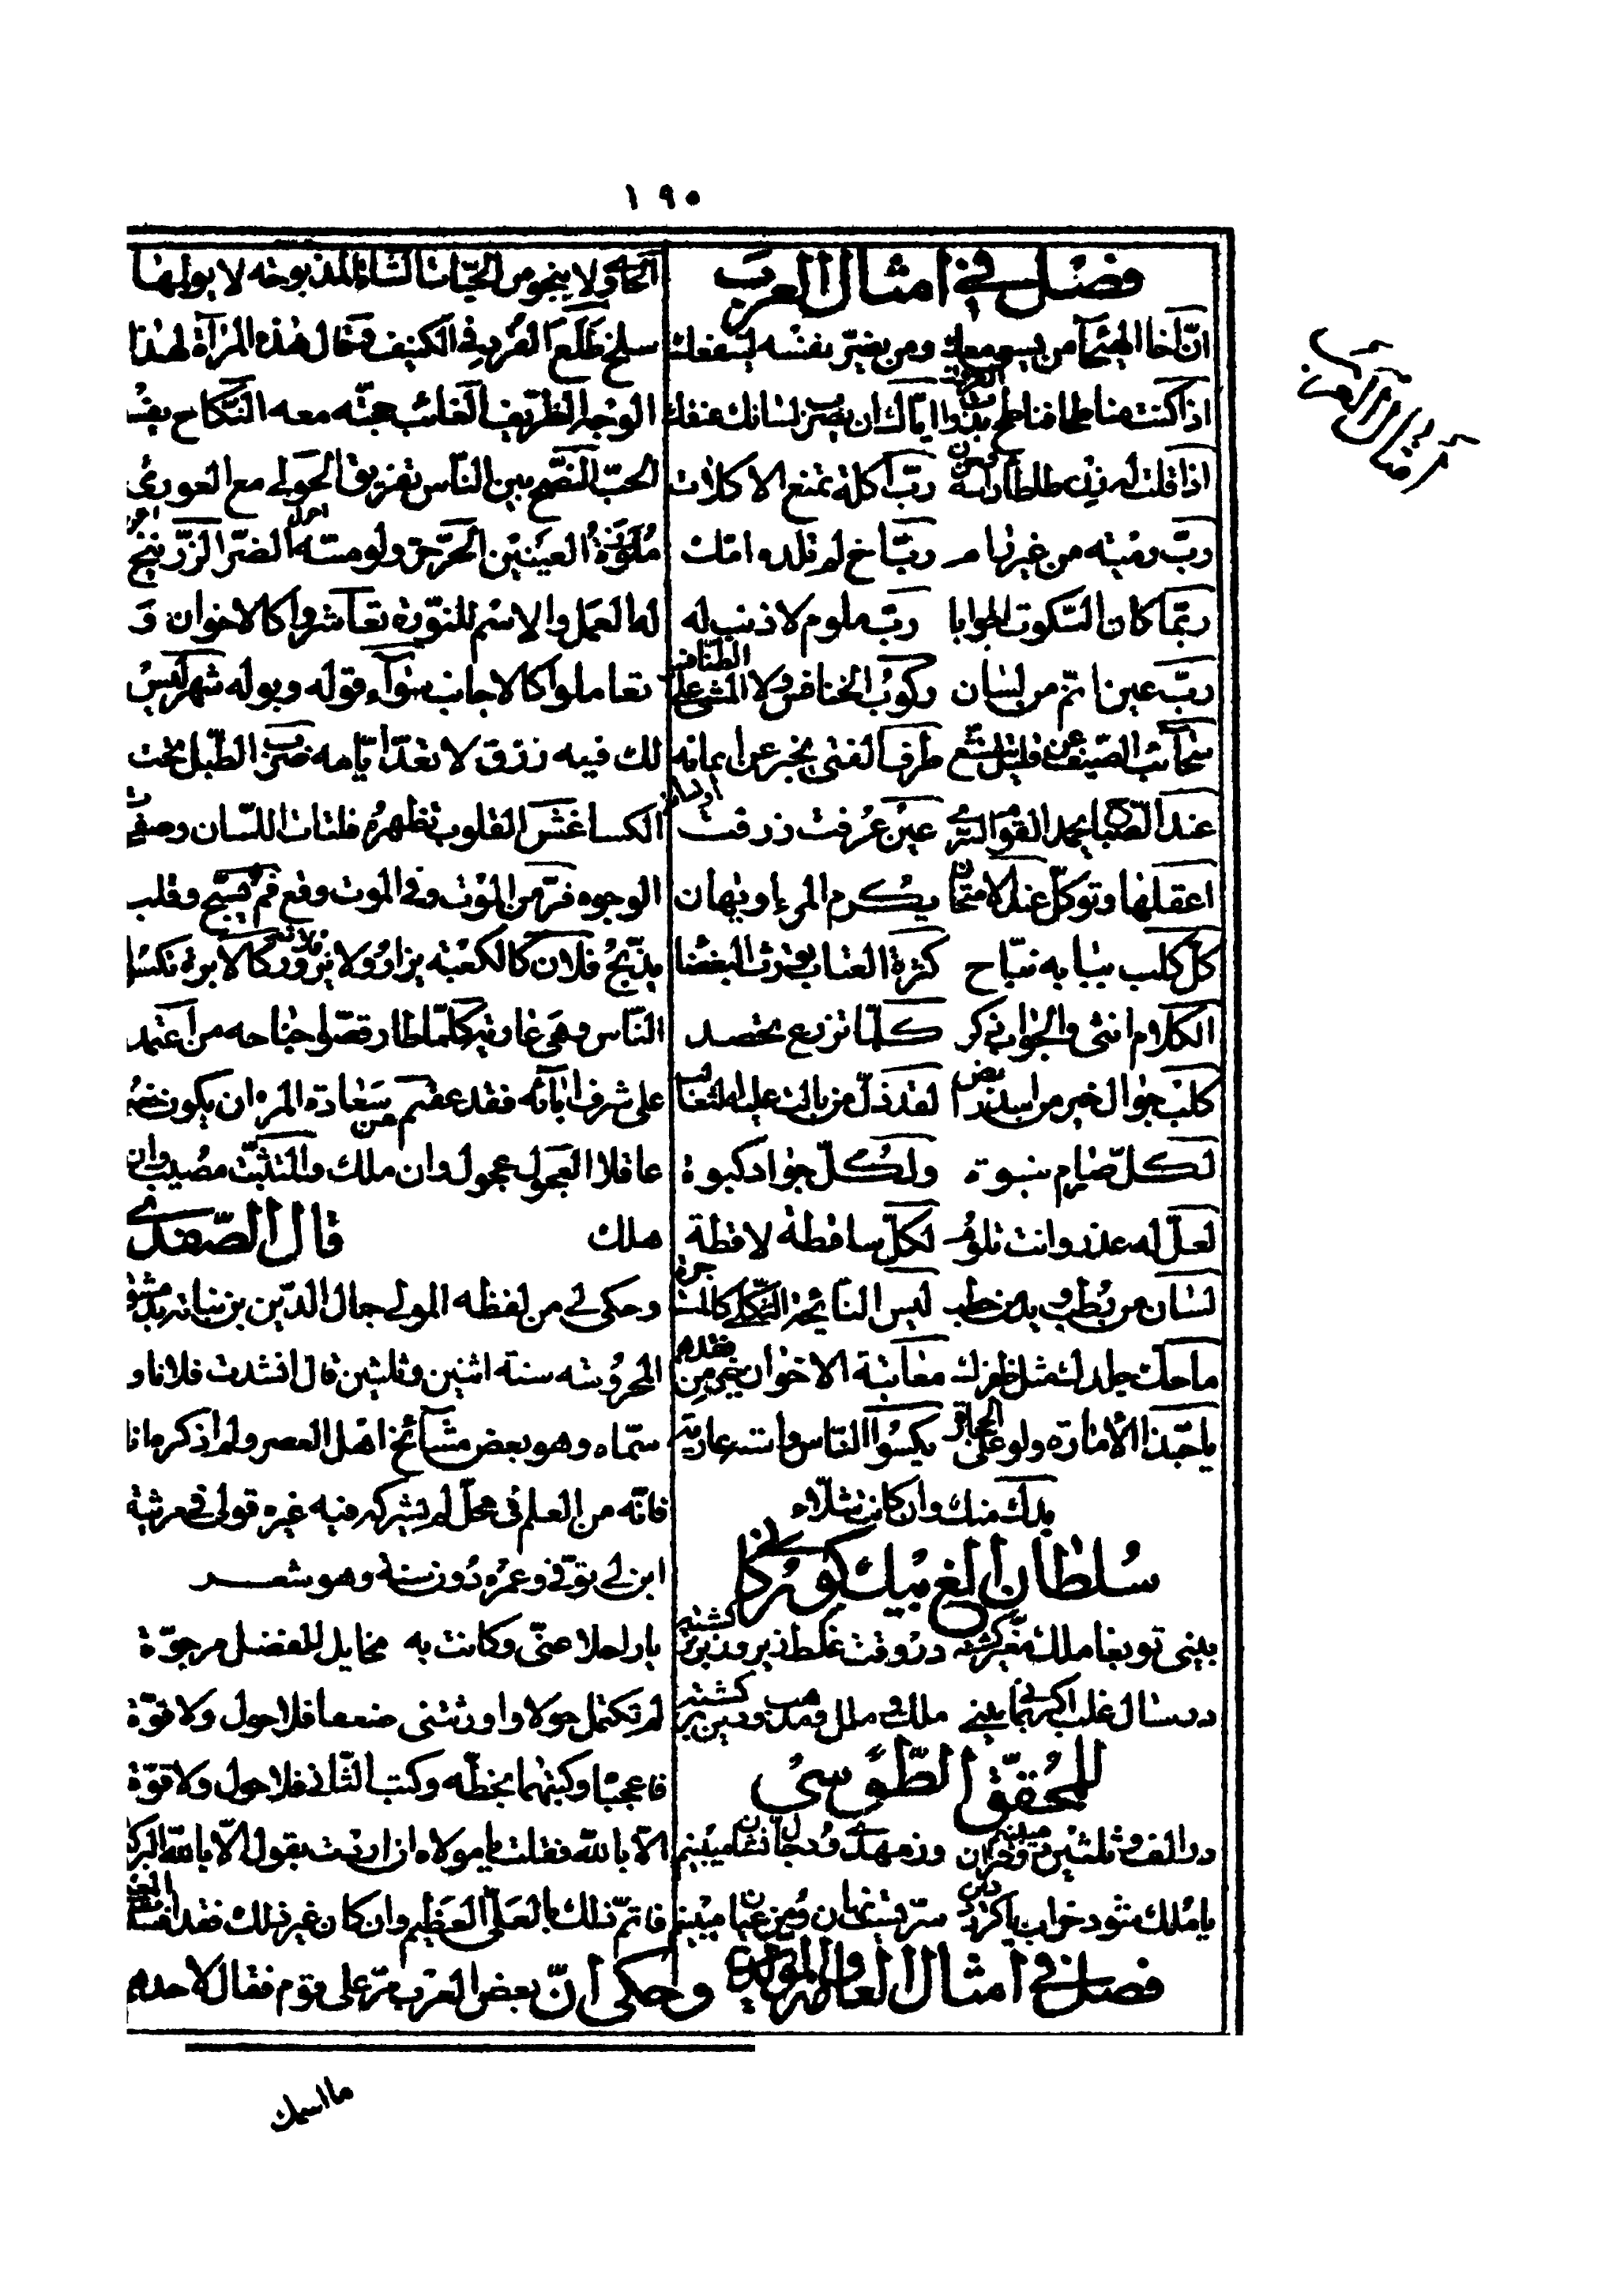 ١٩٠
فصل في امثال العرب
انّ اخا الهيجا من يسعى معك ومن يضرّ نفسه لينفعك
اذا كنت مناطحا فناطح بذوات القرون ايّاك ان يضرب لسانك عنقك
اذا قلت له زن طأطأ رأسه وحزن ربّ اكلة تمنع الاكلات
ربّ رمية من غير رام ربّ اخ لم تلده امّك
ربّما كان السّكوت جوابا ربّ ملوم لا ذنب له
ربّ عين انمّ من لسان ركوب الخنافس ولا المشي على الطنافس
سحائب الصّيف عن قليل تقشّع طرف الفتى يخبر عن ايمانه
عند الصّباح يحمد القوم السّرى عين عرفت فذرفت
اعقلها وتوكّل عند الامتحان يكرم المرء او يهان
كلّ كلب ببابه نبّاح كثرة العتاب يورث البغضا
الكلام انثى والجواب ذكر كلّما تزرع تحصد
كلب جوال خير من اسد رابض لقد ذلّ من بالت عليه الثعالب
لكلّ صارم نبوة ولكلّ جواد كبوة
لعلّ له عذر وانت تلوم لكلّ ساقطة لاقطة
لسان من رطب ويد من خطب ليس النّائحة الثّكلى كالمستأجرة
ما حكّ جلدك مثل ظفرك معاتبة الاخوان خير من فقدهم
يا حبّذا الأمارة ولو على الحجارة يكسوا النّاس واسته عارية
يدك منك وان كانت شلّاء
سلطان الغ بيك كوركان
بيني تو بغا ملك مغير كشته در وقت غلط زير وزبر كشته
در سال غلب اكر بماني بيني ملك وملل ومذهب ودين بر كشته
للمحقّق الطّوسي
در الف وثلثين دو قران ميبينم وز مهدى ودجّال نشان ميبينم
يا ملك شود خراب يا كردد دين سرّيست نهان ومن عيان ميبينم
فصل في امثال العامة والمولدين
الحمّاه ولا ينجو من الحيّات الشاة المذبوحة لا يولمها
سلخ طلع القرد في الكنيف فقال هذه المرآة لهذا
الوجه الظّريف الغائب حجّته معه النّكاح يفسد
الحبّ النّصح بين النّاس تقريع الحولى مع العورى
ملوّزة العينين الحرّ حرّ ولو مسّه الضّر الزّرنيخ
له العمل والاسم للنّورة تعاشروا كالاخوان وَ
تعاملوا كالاجانب سواء قوله وبوله شهر ليس
لك فيه رزق لا تعدّ ايّامه ضرب الطّبل تحت
الكسا غشّ القلوب تظهره فلتات اللّسان وصفحات
الوجوه فرّ من الموت وفي الموت وقع فم يسبّح وقلب
يذبّح فلان كالكعبة يزار ولا يزور فلانة كالابرة تكسو
النّاس وهي عارية كلّما طار قصّوا جناحه من اعتمد
على شرف ابائه فقد عقّهم من سعادة المرء ان يكون خصمه
عاقلا العجول عجول وان ملك والمتثبّت مصيب وان
هلك قال الصّفدي
وحكى لي من لفظه المولى جمال الدّين بن نباته بدمشق
المحروسه سنة اثنين وثلثين قال انشدت فلانا و
سمّاه وهو بعض مشائخ اهل العصر ولم اذكره انا
فانّه من العلم في محلّ لم يشركه فيه غيره قولى في مرثية
ابن لي توفّي وعمره دون سنة وهو شعر
يا راحلا عنّي وكانت به مخايل للفضل مرجوّة
لم تكتمل حولا واورثتنى ضعفا فلا حول ولا قوّة
فاعجبا وكتبهما بخطّه وكتب الثّاني فلا حول ولا قوّة
الّا بالله فقلت يا مولاه ان اردت بقول الّا بالله البركة
فاتمّ ذلك بالعلىّ العظيم وان كان غير ذلك فقد افسدت المعنى
وحكى انّ بعض العرب مرّ على قوم فقال لاحدهم
ما اسمك
امثال العرب